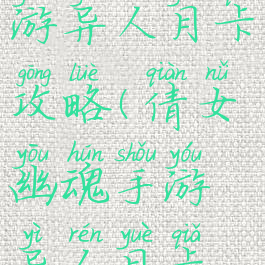 游异人月卡
gōng lüè qiàn nǚ
攻略(倩女
yōu hún shǒu yóu
幽魂手游
yì rén yuè qiǎ
异人月卡